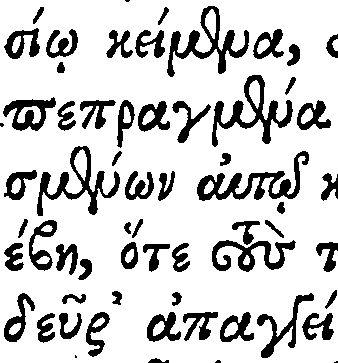 σίῳ κείμενα,
πεπραγμένα
σμένων αὐτῷ κ
έβη, ὅτε τ
δεῦρ᾽ ἀπαγγεί